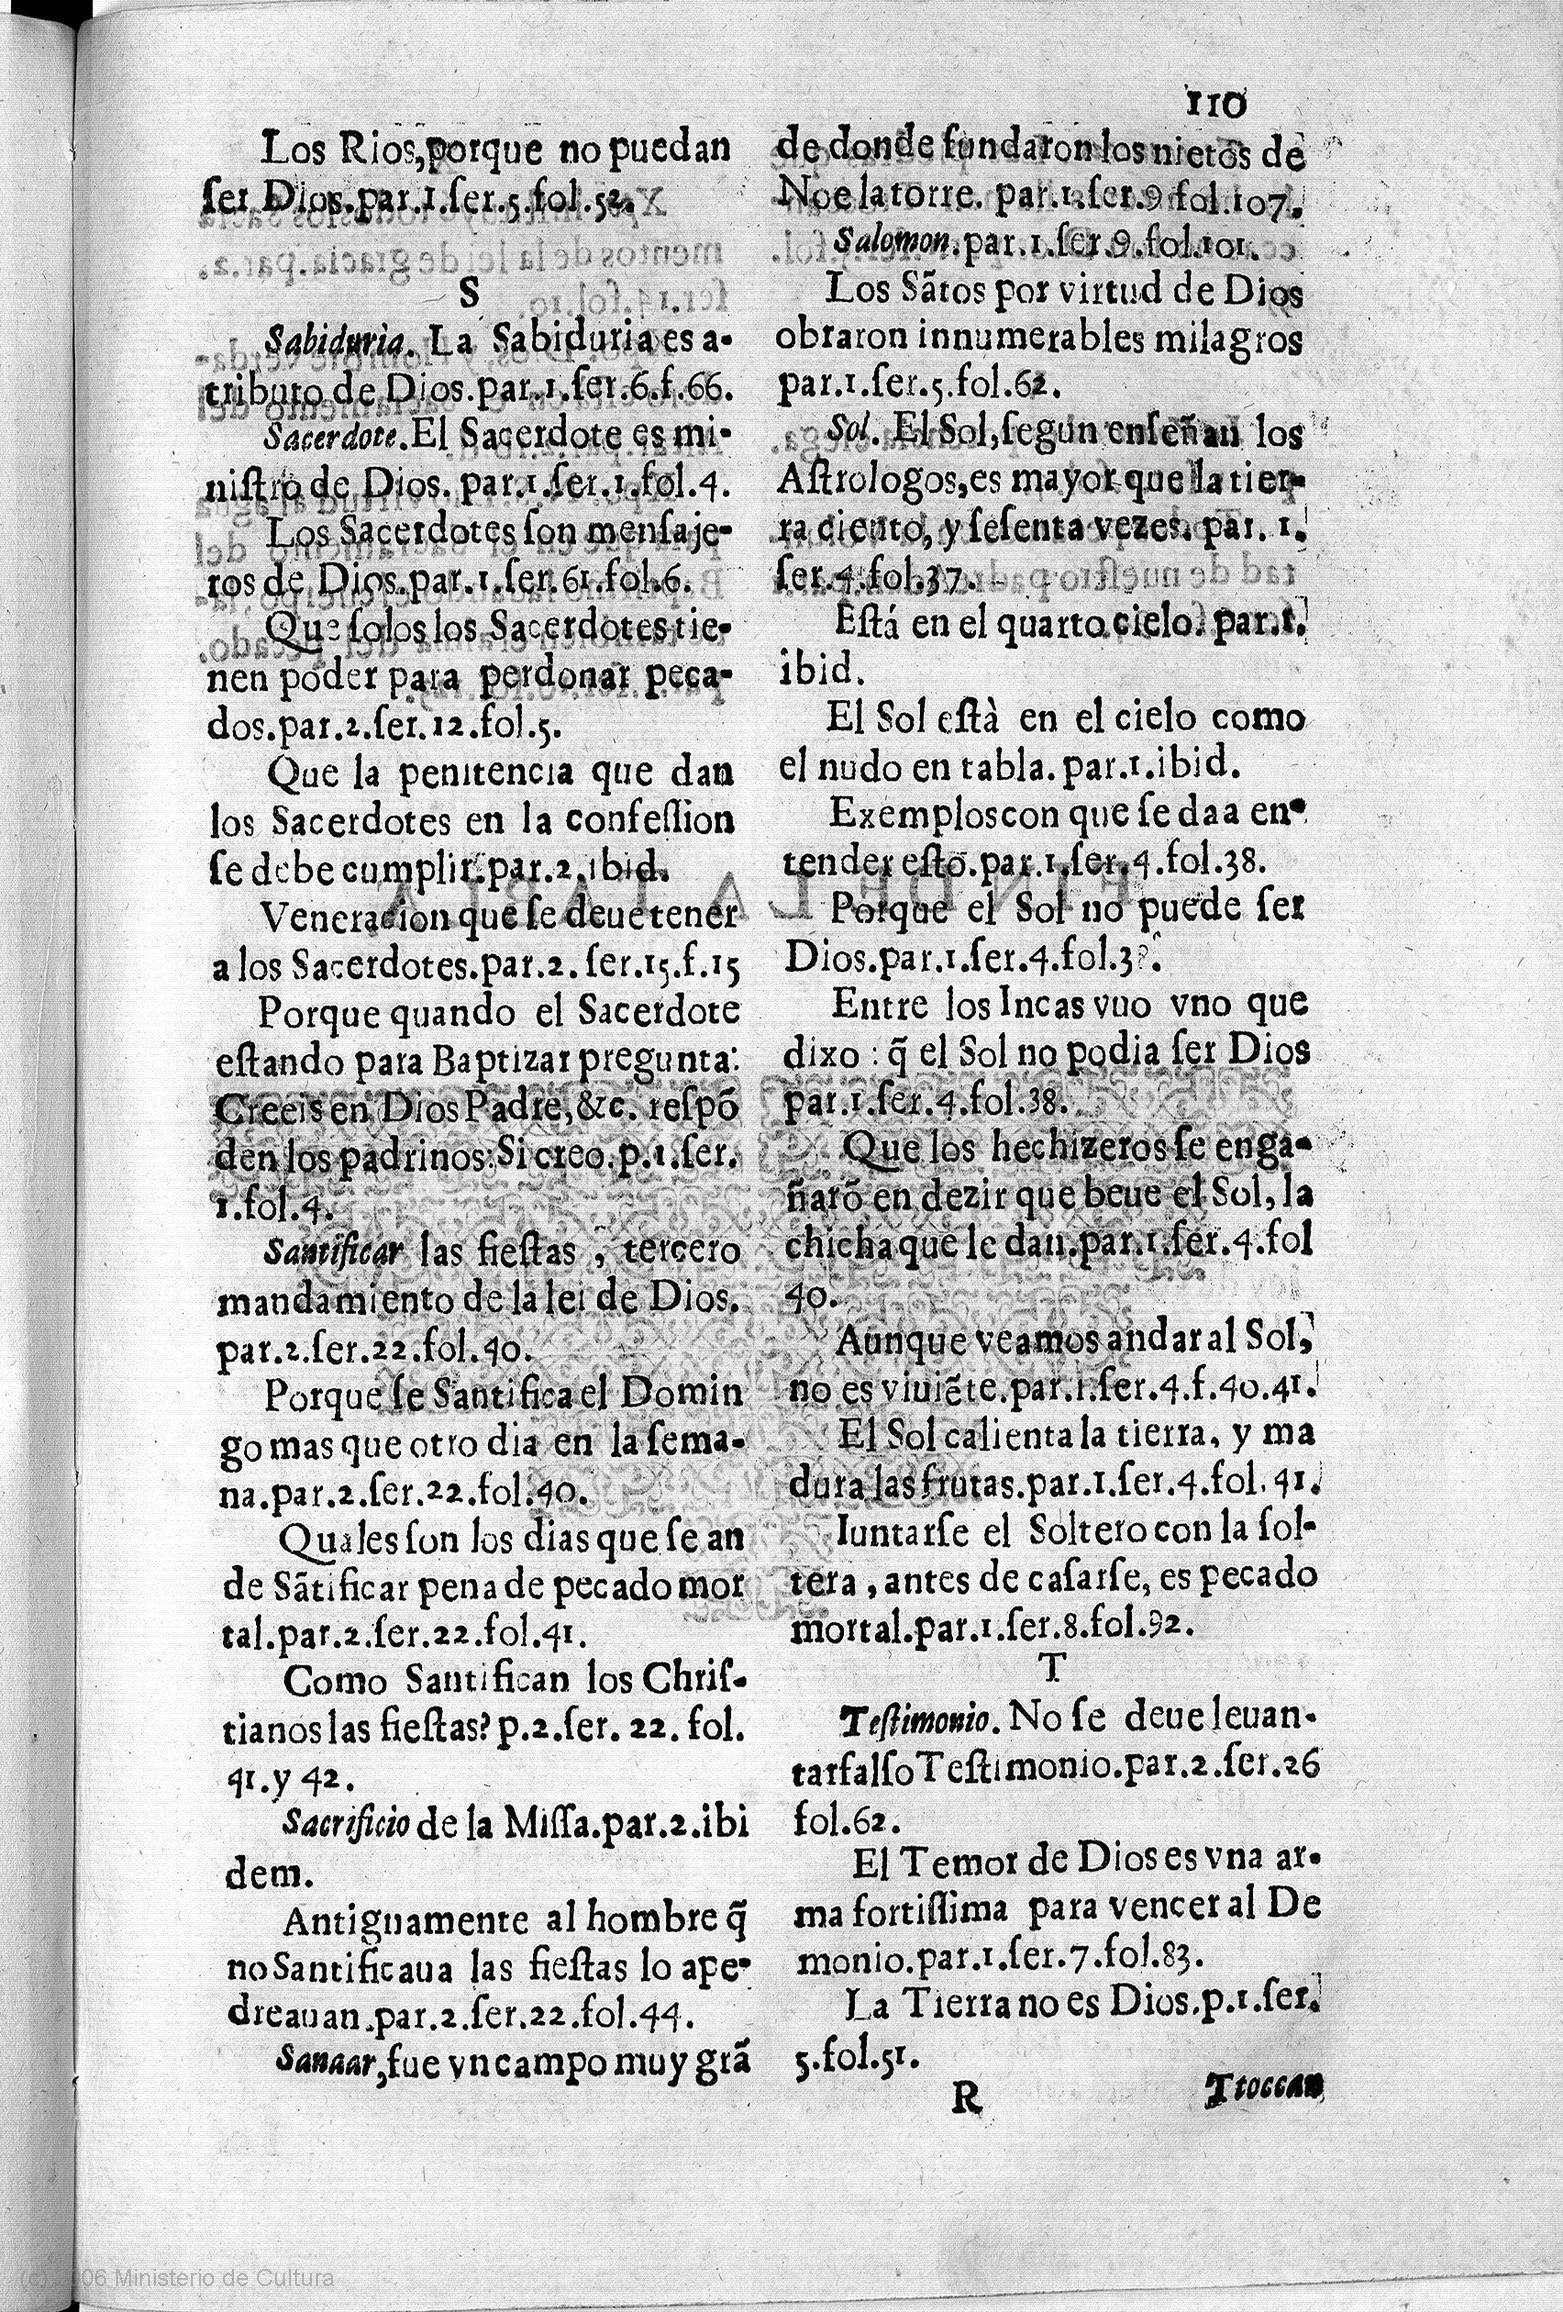 110
Los Rios, porque no puedan
ſer Dios.par.1.ſer.5.fol.52.
S
Sabiduria. La Sabiduria es a-
tributo de Dios.par.1.ſer.6.f.66.
Sacerdote. El Sacerdote es mi-
niſtro de Dios. par.1.ſer.1.fol.4.
Los Sacerdotes ſon menſaje-
ros de Dios.par.1.ſer.61.fol.6.
Que ſolos los Sacerdotes tie-
nen poder para perdonar peca-
dos.par.2.ſer.12.fol.5.
Que la penitencia que dan
los Sacerdotes en la confeſſion
ſe debe cumplir.par.2.ibid.
Veneracion que ſe deue tener
a los Sacerdotes.par.2. ſer.15.f.15
Porque quando el Sacerdote
eſtando para Baptizar pregunta:
Creeis en Dios Padre, &c. reſpõ
den los padrinos: Si creo.p.1.ſer.
1.fol.4.
Santificar las fieſtas, tercero
mandamiento de la lei de Dios.
par.2.ſer.22.fol.40.
Porque ſe Santifica el Domin
go mas que otro dia en la ſema-
na.par.2.ſer.22.fol.40.
Quales ſon los dias que ſe an
de Sãtificar pena de pecado mor
tal.par.2.ſer.22.fol.41.
Como Santifican los Chriſ-
tianos las fieſtas? p.2.ſer. 22. fol.
41.y 42.
Sacrificio de la Miſſa.par.2.ibi
dem.
Antiguamente al hombre q̃
no Santificaua las fieſtas lo ape-
dreauan.par.2.ſer.22.fol.44.
Sanaar, fue vn campo muy grã
de donde fundaron los nietos de
Noe la torre. par.1.ſer.9 fol.107.
Salomon.par.1.ſer.9.fol.101.
Los Sãtos por virtud de Dios
obraron innumerables milagros
par.1.ſer.5.fol.62.
Sol. El Sol, ſegun enſeñan los
Aſtrologos, es mayor que la tier-
ra ciento, y ſeſenta vezes. par. 1.
ſer.4.fol.37.
Eſtá en el quarto cielo. par.1.
ibid.
El Sol eſtà en el cielo como
el nudo en tabla. par.1.ibid.
Exemplos con que ſe da a en-
tender eſto.par.1.ſer.4.fol.38.
Porque el Sol no puede ſer
Dios.par.1.ſer.4.fol.
Entre los Incas vuo vno que
dixo : q̃ el Sol no podia ſer Dios
par.1.ſer.4.fol.38.
Que los hechizeros ſe enga-
ñarõ en dezir que beue el Sol, la
chicha que le dan.par.1.ſer.4.fol
40.
Aunque veamos andar al Sol,
no es viuiẽte.par.1.ſer.4.f.40.41.
El Sol calienta la tierra, y ma
dura las frutas.par.1.ſer.4.fol.41.
Iuntarſe el Soltero con la ſol-
tera, antes de caſarſe, es pecado
mortal.par.1.ſer.8.fol.92.
T
Teſtimonio. No ſe deue leuan-
tar falſo Teſtimonio.par.2.ſer.26
fol.62.
El Temor de Dios es vna ar-
ma fortiſſima para vencer al De
monio.par.1.ſer.7.fol.83.
La Tierra no es Dios.p.1.ſer.
5.fol.51.
R
Ttoccan
(c) 2006 Ministerio de Cultura